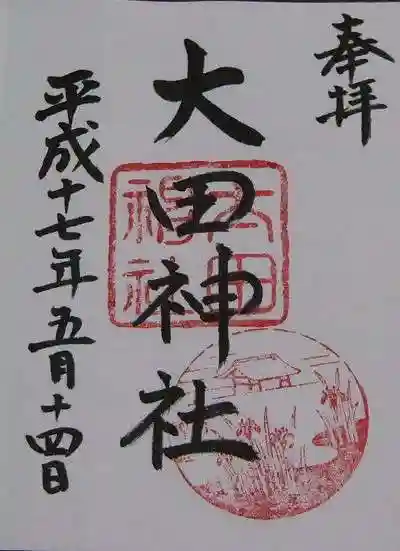 奉拝
大田神社
大田
神社
平成十七年五月十四日